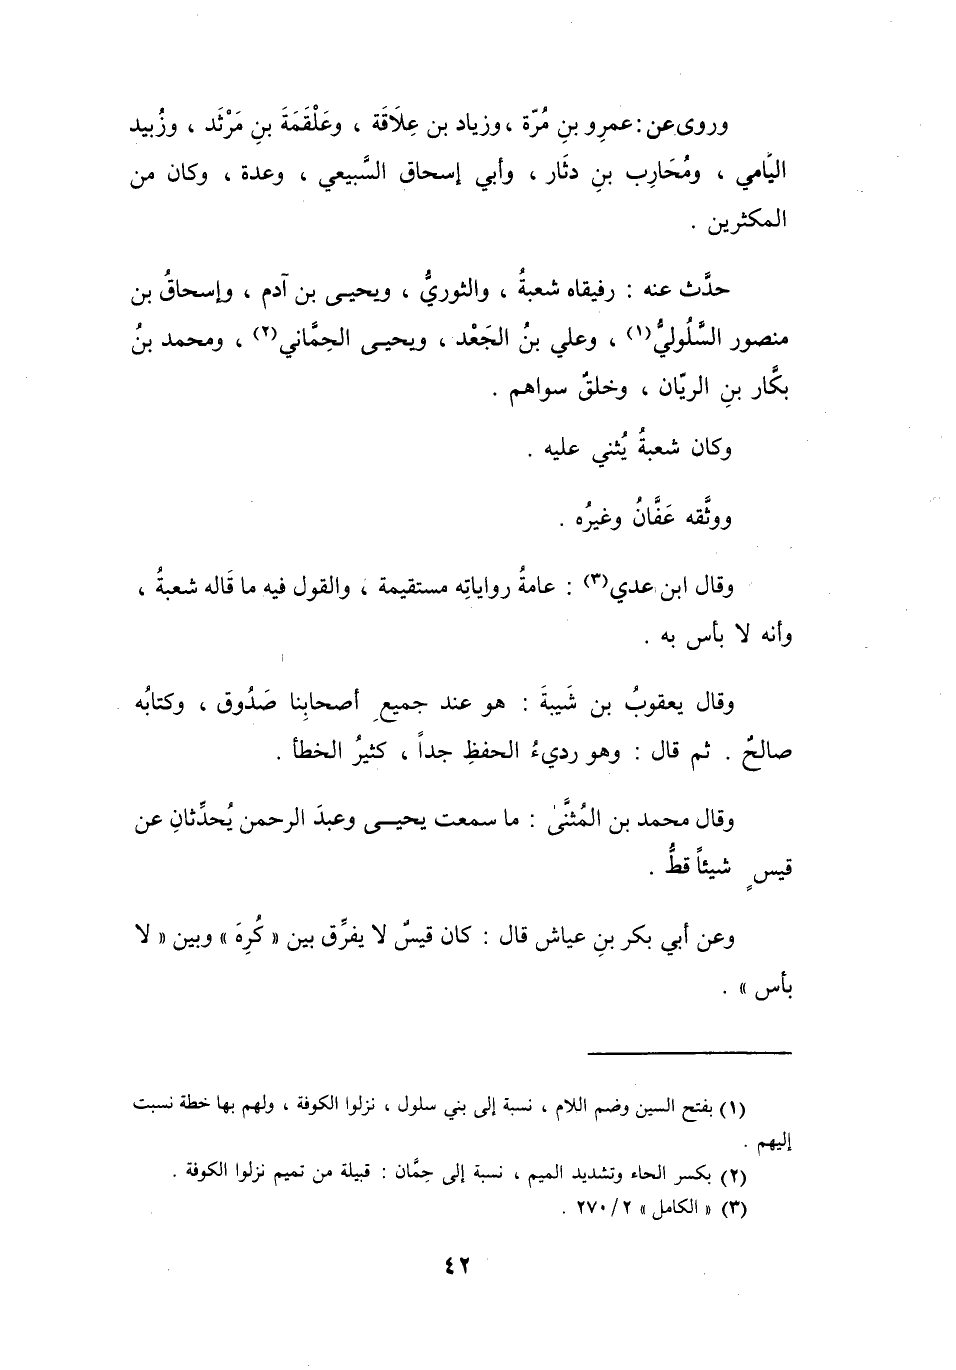 وروى عن : عمرِو بنِ مُرّة ، وزياد بن عِلَاقَة ، وعَلْقَمَةَ بنِ مَرْثَد ، وزُبيد
اليَامي ، ومُحَارِب بنِ دثَار ، وأبي إسحاق السَّبيعي ، وعدة ، وكان من
المكثرين .
حدَّث عنه : رفيقاه شعبةُ ، والثوريُّ ، ويحيى بن آدم ، وإسحاقُ بن
منصور السَّلُوليُّ(١) ، وعلي بنُ الجَعْد ، ويحيى الحِمَّاني(٢) ، ومحمد بنُ
بكَّار بنِ الريّان ، وخلقٌ سواهم .
وكان شعبةُ يُثني عليه .
ووثَّقه عَفَّانُ وغيرُه .
وقال ابن عدي(٣) : عامةُ رواياتِه مستقيمة ، والقول فيه ما قَاله شعبةُ ،
وأنه لا بأس به .
وقال يعقوبُ بن شَيبةَ : هو عند جميعِ أصحابِنا صَدُوق ، وكتابُه
صالحٌ . ثم قال : وهو رديءُ الحفظِ جداً ، كثيرُ الخطأ .
وقال محمد بن المُثنَّى : ما سمعت يحيى وعبدَ الرحمن يُحدِّثانِ عن
قيسٍ شيئاً قطُّ .
وعن أبي بكر بنِ عياش قال : كان قيسٌ لا يفرِّق بين « كُرِهَ » وبين « لا
بأس » .
(١) بفتح السين وضم اللام ، نسبة إلى بني سلول ، نزلوا الكوفة ، ولهم بها خطة نسبت
إليهم .
(٢) بكسر الحاء وتشديد الميم ، نسبة إلى حِمَّان : قبيلة من تميم نزلوا الكوفة .
(٣) « الكامل » ٢ / ٢٧٠ .
٤٢